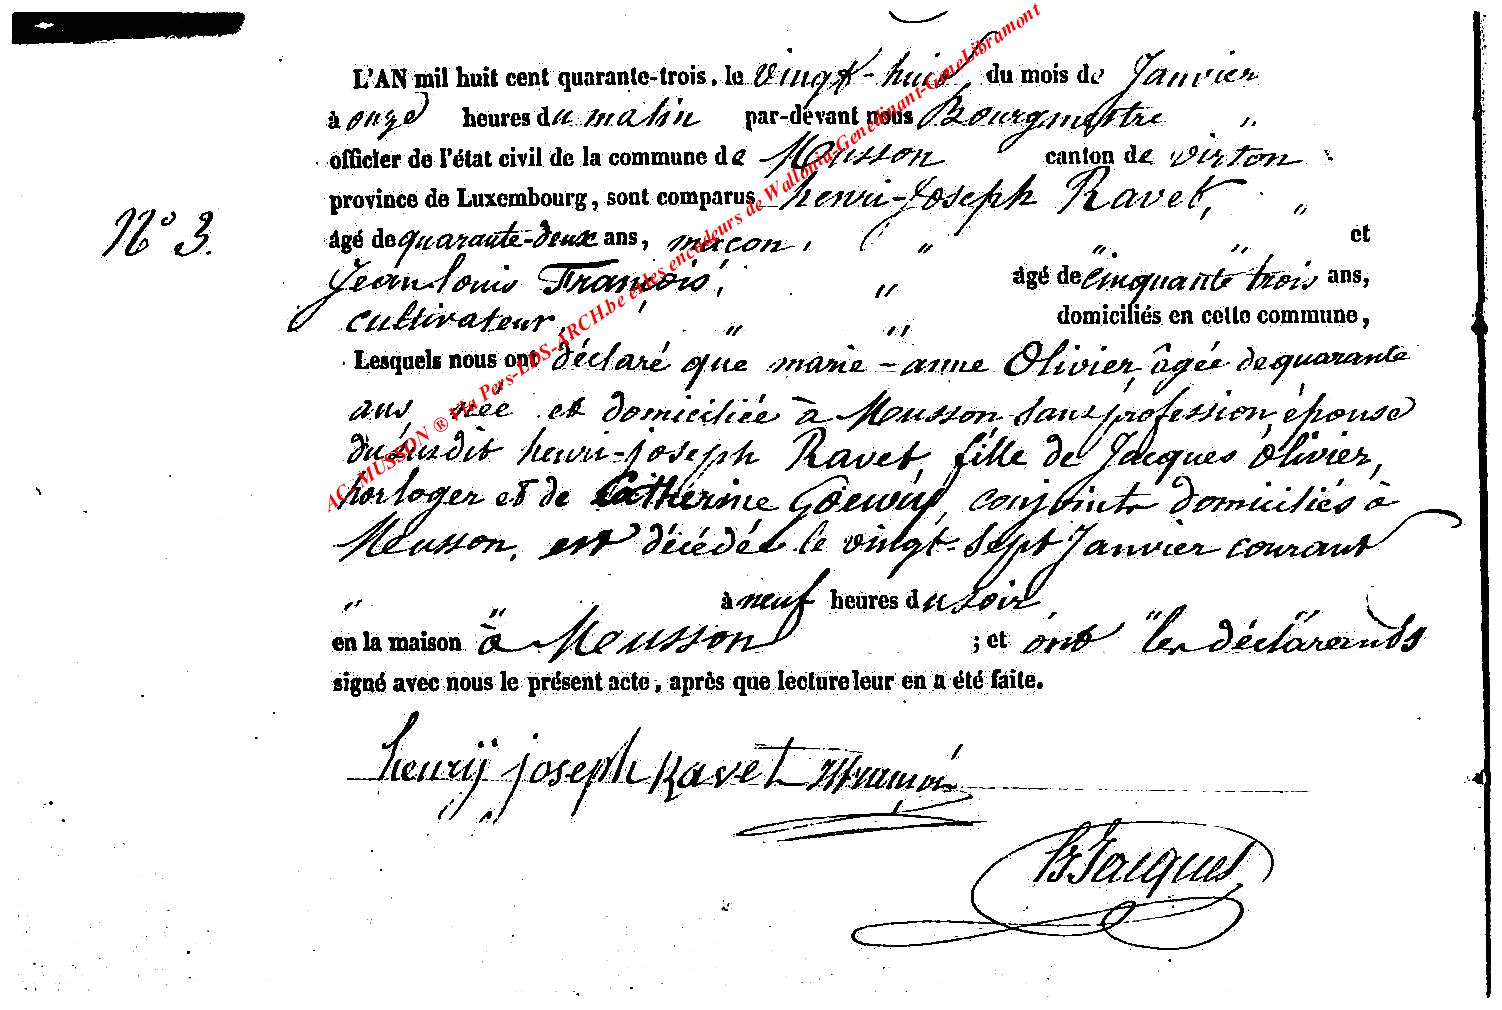 L'AN mil huit cent quarante-trois, le vingt-huit, du mois de Janvier
à onze heures du matin par-devant nous Bourgmestre "
officier de l'état civil de la commune de Musson canton de virton
province de Luxembourg, sont comparus henri-Joseph Ravet, "
N° 3.
âgé de quarante-deux ans, maçon, " " " et
Jean louis François, " âgé de cinquante trois ans,
cultivateur, " " domiciliés en cette commune,
Lesquels nous ont déclaré que marie-anne Olivier, âgée de quarante
ans, née et domiciliée à Musson, sans profession, épouse
du susdit henri-joseph Ravet, fille de Jacques Olivier,
horloger et de Catherine conjoints domiciliés à
Musson, est décédée le vingt-sept Janvier courant
" " à neuf heures du soir
en la maison à Musson " " ; et ont les déclarants
signé avec nous le présent acte, après que lecture leur en a été faite.
henrÿ joseph Ravet françois
Jacques
AC-MUSSON ® Via Pers-EDS-ARCH.be et les encodeurs de Wallonia-Genedinant-GeneLibramont